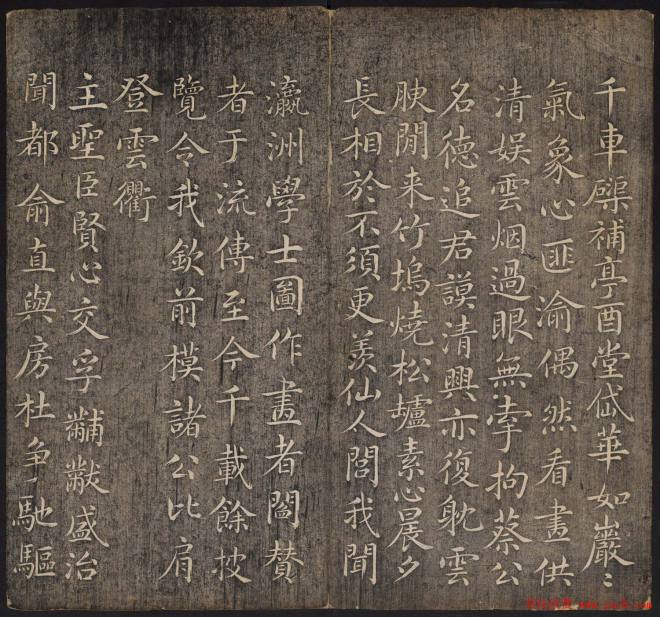 千車礤補亭酉堂岱華如巖〻
氣象心匪渝偶然看畫供
清娱雲烟過眼無牽拘蔡公
名德追君謨清興亦復躭雲
腴閒来竹塢燒松壚素心晨夕
長相於不須更羡仙人閭我聞
瀛洲學士圖作畫者閻贊
者于流傳至今千載餘披
覽令我欽前模諸公比肩
登雲衢
主聖臣賢心交孚黼黻盛治
聞都俞直與房杜爭馳驅